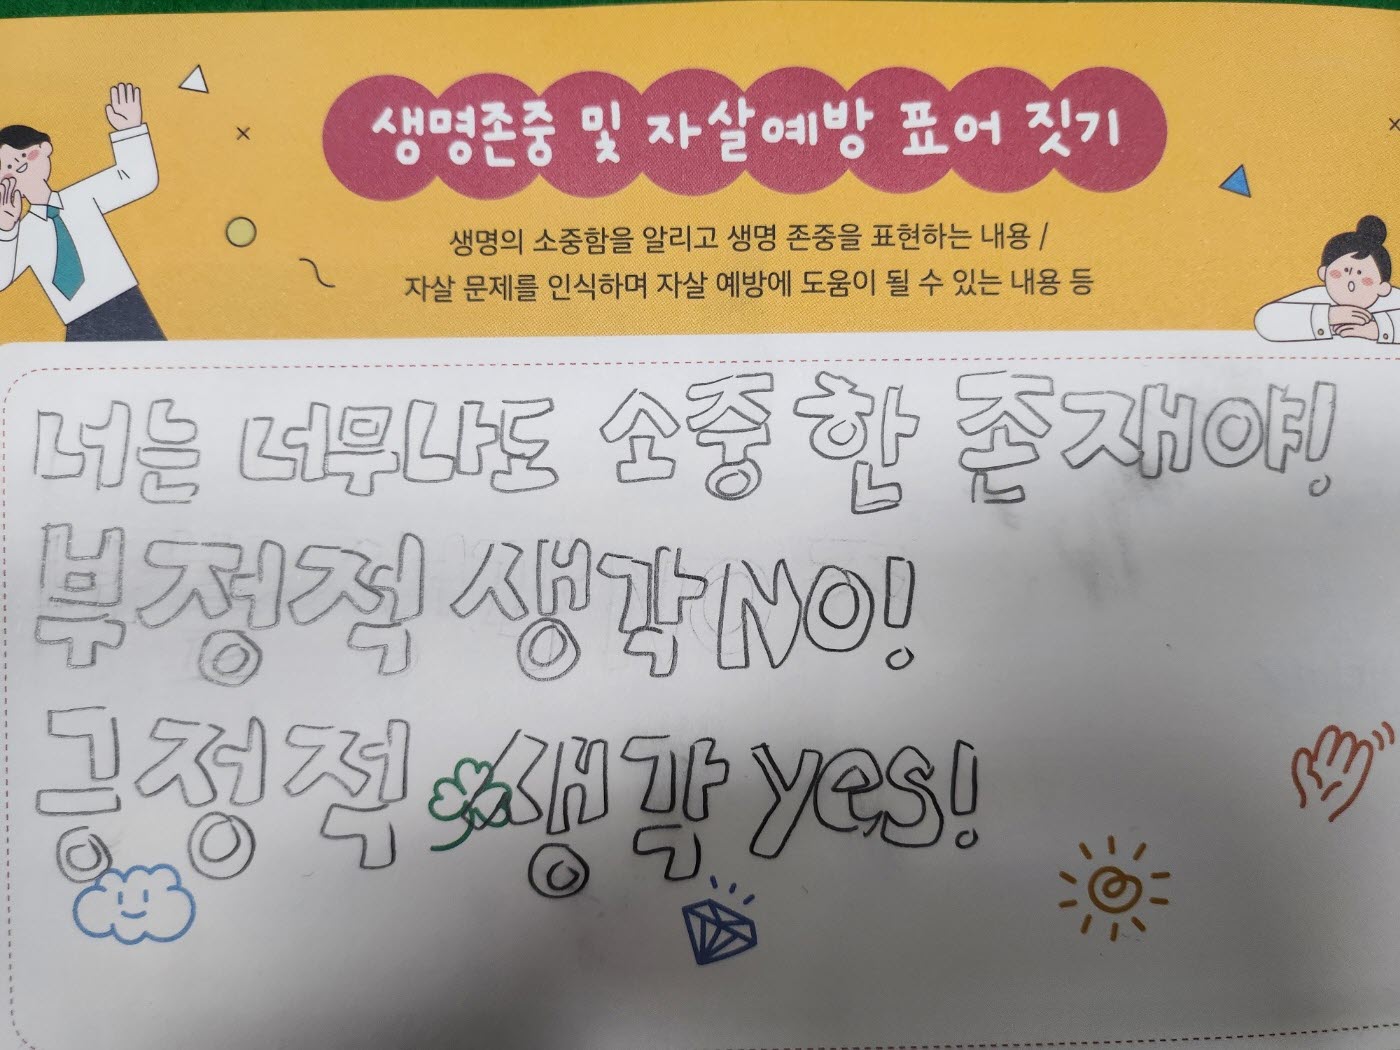 생명존중 및 자살예방 표어 짓기
생명의 소중함을 알리고 생명 존중을 표현하는 내용 /
자살 문제를 인식하며 자살 예방에 도움이 될 수 있는 내용 등
너는 너무나도 소중한 존재야!
부정적 생각 NO!
긍정적 생각 yes!